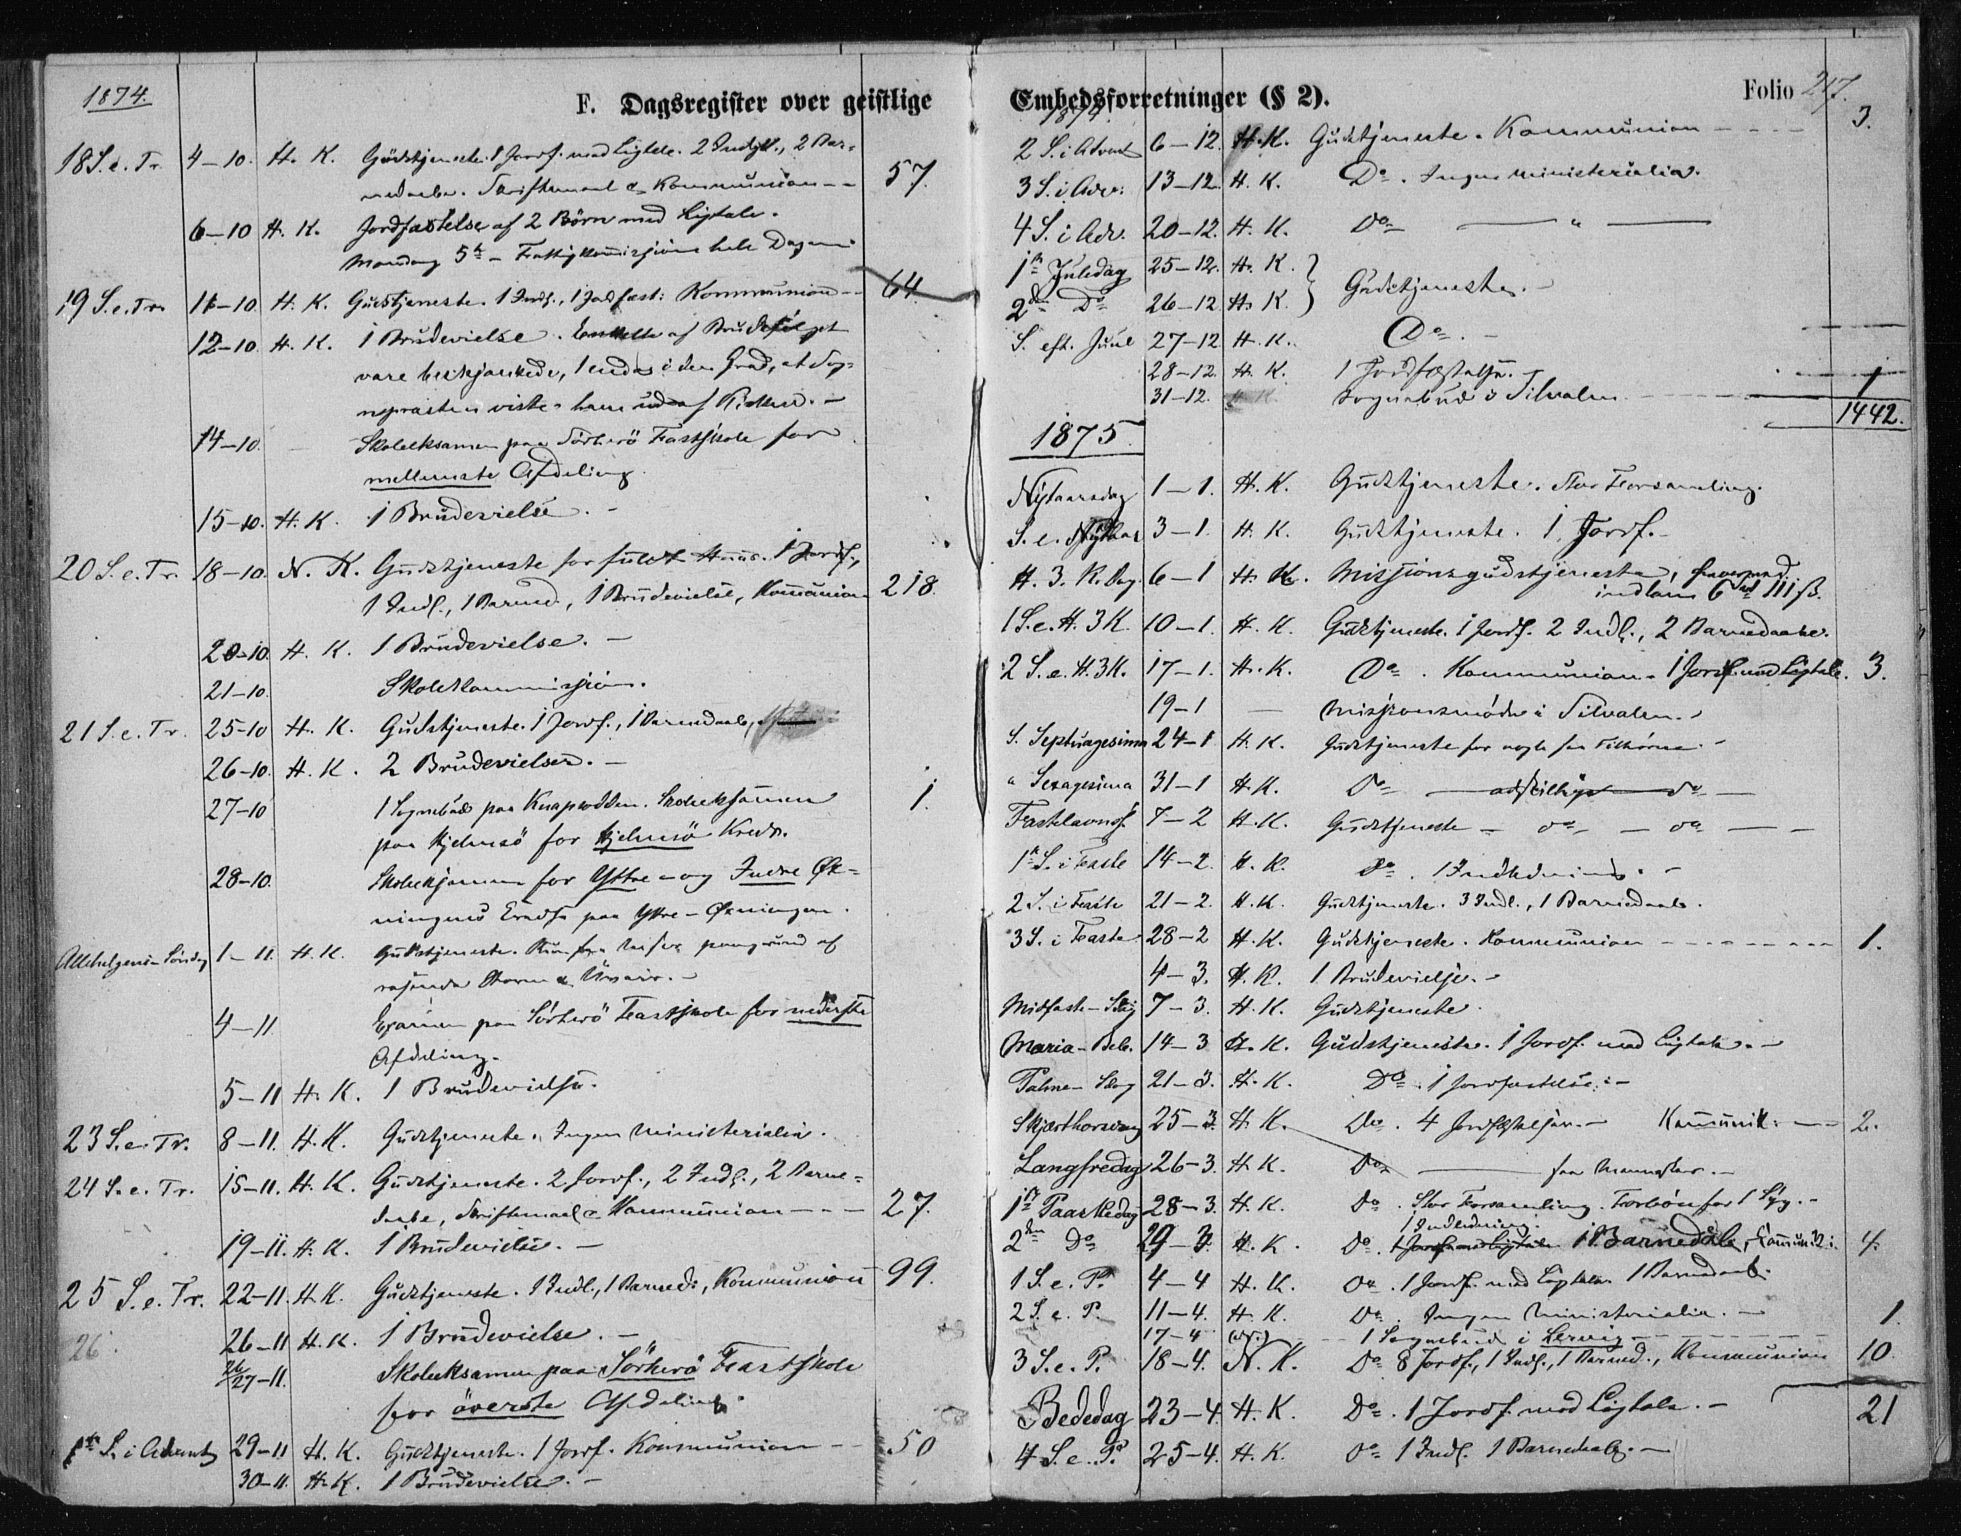 1874.
F. Dagsregister over geistlige
18 S. e. Tr. 4-10. H. K. Gudstjeneste. 1 Jordf. med Ligtale. 2 Indl., 2 Bar-
nedaabe. Skriftemaal & Kommunion -- 57.
6-10 H. K. Jordfæstelse af 2 Børn med Ligtale.
Mandag 5te - Fattigkommission hele Dagen.
19 S. e. Tr. 11-10. H. K. Gudstjeneste. 1 Indl., 1 Jordfæst: Kommunion -- 64.
12-10. H. K. 1 Brudevielse. Enkelte af Brudefølget
vare beskjænkede, 1 endog i den Grad, at Sog-
nepræsten viste ham ud af Kirken. -
14-10. Skoleeksamen paa Sörherö Fastskole for
mellemste Afdeling.
15-10. H. K. 1 Brudevielse. -
20 S. e. Tr. 18-10. N. K. Gudstjeneste for fuldt Huus. 1 Jordf.,
1 Indl., 1 Barned., 1 Brudevielse, Kommunion 218.
20-10. H. K. 1 Brudevielse. -
21-10. Skolekommission.
21 S. e. Tr. 25-10 H. K. Gudstjeneste. 1 Jordf., 1 Barnedaab,
26-10. H. K. 2 Brudevielser. -
27-10 1 Sognebud paa . Skoleeksamen 1.
paa Hjelmsö for Hjelmsö Kreds.
28-10. Skoleeksamen for Yttre- og Indre Øk-
ningens Kreds paa Yttre-Økningen.
Allehelgens-Søndag 1-11. H. K. Gudstjeneste. Kun faa paa grund af
rasende Storm & Uveir. -
4-11 Examen paa Sörherö Fastskole for nederste
Afdeling.
5-11 H. K. 1 Brudevielse.
23 S. e. Tr. 8-11. H. K. Gudstjeneste. Ingen Ministerialia.
24 S. e. Tr. 15-11. H. K. Gudstjeneste. 2 Jordf., 2 Indl., 2 Barne-
daabe, Skriftemaal & Kommunion --- 27.
19-11. H. K. 1 Brudevielse. -
25 S. e. Tr. 22-11. H. K. Gudstjeneste. 1 Indl., 1 Barned:, Kommunion 99.
26. 26-11 H. K. 1 Brudevielse. -
26/27-11. Skoleeksamen paa Sörherö Fastskole
for överste Afdeling.
1ste S. i Advent 29-11 H. K. Gudstjeneste. 1 Jordf. Kommunion -- 50
30-11. H. K. 1 Brudevielse. -
Embedsforretninger (§ 2). Folio 247.
1874.
2 S. i Advent 6-12. H. K. Gudstjeneste. Kommunion ---- 3.
3 S. i Adv: 13-12. H. K. Do. Ingen Ministerialia.
4 S. i Adv. 20-12. H. K. Do — " —
1ste Juledag 25-12. H. K. } Gudstjeneste. -
2den Do 26-12 H. K. }
S. eft. Juul 27-12 H. K. Do. -
28-12. H. K. 1 Jordfæstelse.
31-12. H. K. Sognebud i Tilvalen. --- 1
1442.
1875
Nytaarsdag 1-1. H. K. Gudstjeneste. Stor Forsamling.
S. e. Nytaar 3-1. H. K. Gudstjeneste. 1 Jordf. -
H. 3. K. Dag. 6-1 H. K. Missionsgudstjeneste,
indkom 6 111 ß.
1 S. e. H. 3 K. 10-1. H. K. Gudstjeneste. 1 Jordf. 2 Indl., 2 Barnedaabe.
2 S. e. H. 3 K. 17-1. H. K. Do. Kommunion. 1 Jordf. med Ligtale. 3.
19-1 — Missionsmøde i Tilvalen. -
S. Septuagesima 24-1 H. K. Gudstjeneste for nogle faa Tilhørere. -
" Sexagesima 31-1 H. K. Do — adskillige — do —
Fastelavnsf. 7-2 H. K. Gudstjeneste - do - - do - -
1ste S. i Faste 14-2. H. K. Do. 1 Indledning. -
2 S. i Faste 21-2. H. K. Gudstjeneste. 3 Indl., 1 Barnedaab.
3 S. i Faste 28-2 H. K. Gudstjeneste. Kommunion -------- 1.
4-3. H. K. 1 Brudevielse. -
Midfaste-Sdag 7-3. H. K. Gudstjeneste.
Maria-Beb. 14-3 H. K. Gudstjeneste. 1 Jordf. med Ligtale. -
Palme-Sdag 21-3. H. K. Do. 1 Jordfæstelse. -
Skjærthorsdag 25-3. H. K. Do. 4 Jordfæstelser. - Kommunik: --- 2.
Langfredag 26-3. H. K. Do — faa Mennesker. -
1ste Paaskedag 28-3. H. K. Do. Stor Forsamling. Forbøn for 1 Syg. -
1 Indledning.
2den Do 29-3. H. K. Do. 1 Jordf. med Ligtale 1 Barnedåb, Kommunik: 4.
1 S. e. P. 4-4 H. K. Do. 1 Jordf. med Ligtale 1 Barnedaab.
2 S. e. P. 11-4. H. K. Do. Ingen Ministerialia. -
17-4 -- 1 Sognebud i Lervig ------ 1.
3 S. e. P. 18-4. N. K. Do 8 Jordf., 1 Indl., 1 Barned., Kommunion 10.
Bededag 23-4. H. K. Do. 1 Jordf. med Ligtale. - 21
4 S. e. P. 25-4. H. K. Do 1 Indl. 1 Barnedaab. -